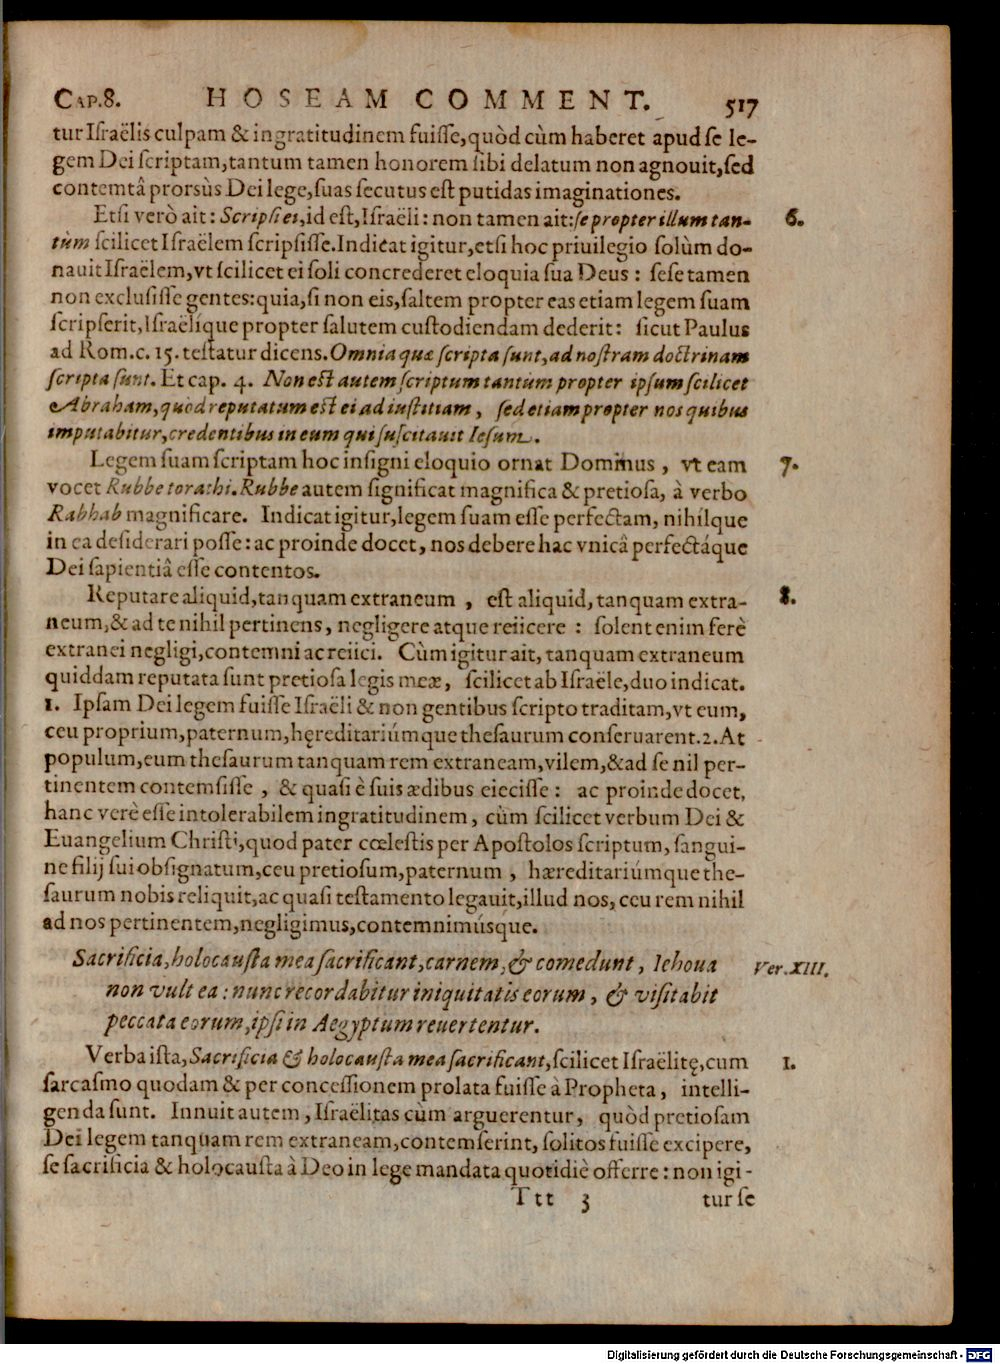 CAP.8. HOSEAM COMMENT. 517
tur Israëlis culpam & ingratitudinem fuisse, quòd cùm haberet apud se le-
gem Dei scriptam, tantum tamen honorem sibi delatum non agnouit, sed
contemtâ prorsùs Dei lege, suas secutus est putidas imaginationes.
Etsi verò ait: Scripsi ei, id est, Israëli: non tamen ait: se propter illum tan- 6.
tùm scilicet Israëlem scripsisse. Indicat igitur, etsi hoc priuilegio solùm do-
nauit Israëlem, vt scilicet ei soli concrederet eloquia sua Deus: sese tamen
non exclusisse gentes: quia, si non eis, saltem propter eas etiam legem suam
scripserit, Israëlíque propter salutem custodiendam dederit: sicut Paulus
ad Rom. c. 15. testatur dicens. Omnia quæ scripta sunt, ad nostram doctrinam
scripta sunt. Et cap. 4. Non est autem scriptum tantùm propter ipsum scilicet
Abraham, quòd reputatum est ei ad iustitiam, sed etiam propter nos quibus
imputabitur, credentibus in eum qui suscitauit Iesum.
Legem suam scriptam hoc insigni eloquio ornat Dominus, vt eam 7.
vocet Rubbe torathi. Rubbe autem significat magnifica & pretiosa, à verbo
Rabhab magnificare. Indicat igitur, legem suam esse perfectam, nihílque
in ea desiderari posse: ac proinde docet, nos debere hac vnicâ perfectáque
Dei sapientiâ esse contentos.
Reputare aliquid, tanquam extraneum, est aliquid, tanquam extra- 8.
neum, & ad te nihil pertinens, negligere atque reiicere: solent enim ferè
extranei negligi, contemni ac reiici. Cùm igitur ait, tanquam extraneum
quiddam reputata sunt pretiosa legis meæ, scilicet ab Israële, duo indicat.
1. Ipsam Dei legem fuisse Israëli & non gentibus scripto traditam, vt eum,
ceu proprium, paternum, hęreditariúmque thesaurum conseruarent. 2. At
populum, eum thesaurum tanquam rem extraneam, vilem, & ad se nil per-
tinentem contemsisse, & quasi è suis ædibus eiecisse: ac proinde docet,
hanc verè esse intolerabilem ingratitudinem, cùm scilicet verbum Dei &
Euangelium Christi, quod pater cœlestis per Apostolos scriptum, sangui-
ne filij sui obsignatum, ceu pretiosum, paternum, hæreditariúmque the-
saurum nobis reliquit, ac quasi testamento legauit, illud nos, ceu rem nihil
ad nos pertinentem, negligimus, contemnimúsque.
Sacrificia, holocausta mea sacrificant, carnem, & comedunt, Iehoua Ver. XIII.
non vult ea: nunc recordabitur iniquitatis eorum, & visitabit
peccata eorum, ipsi in Aegyptum reuertentur.
Verba ista, Sacrificia & holocausta mea sacrificant, scilicet Israëlitę, cum 1.
sarcasmo quodam & per concessionem prolata fuisse à Propheta, intelli-
genda sunt. Innuit autem, Israëlitas cùm arguerentur, quòd pretiosam
Dei legem tanquam rem extraneam, contemserint, solitos fuisse excipere,
se sacrificia & holocausta à Deo in lege mandata quotidiè offerre: non igi-
Ttt 3 tur se
Digitalisierung gefördert durch die Deutsche Forschungsgemeinschaft - DFG